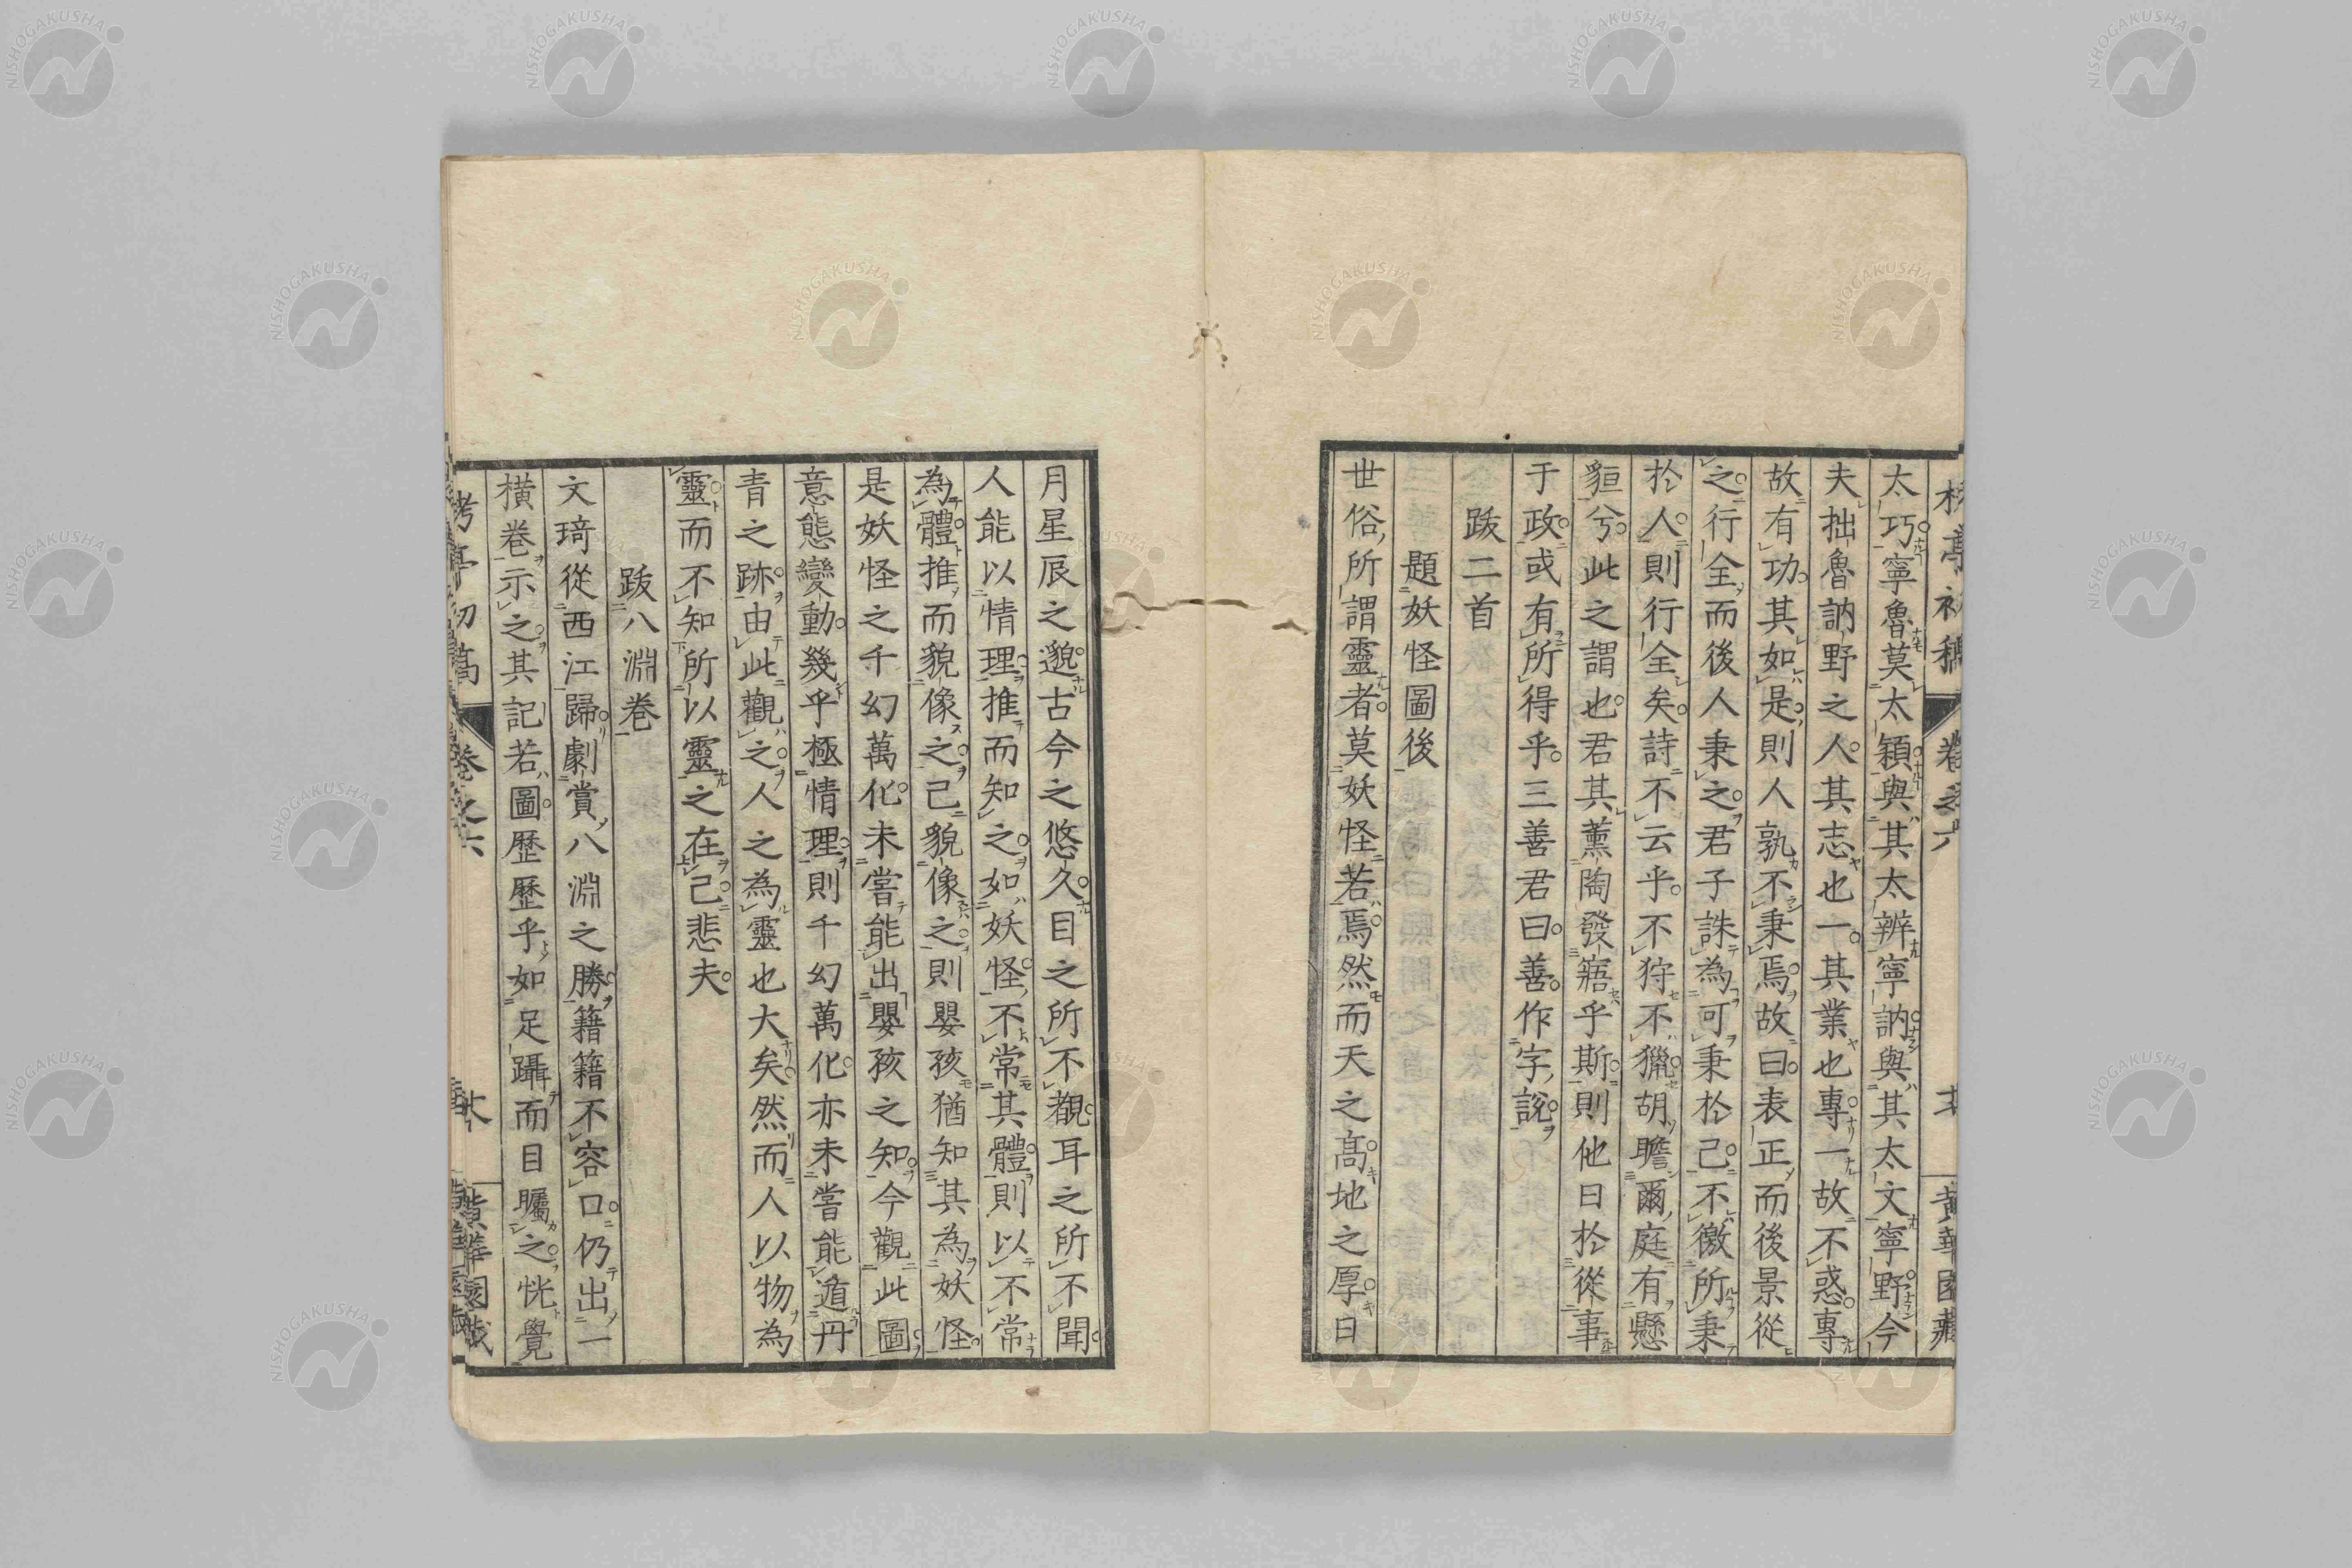 太巧寧魯莫太穎與其太辨寧訥與其太文寧野今
夫拙魯訥野之人其志也一其業也專一故不惑專
故有功其如是則人孰不秉焉故曰表正而後景從
之行全而後人秉之君子誅為可秉於己不徼所秉
於人則行全矣詩不云乎不狩不獵胡瞻爾庭有懸
貆兮此之謂也君其薰陶發寤乎斯則他日於從事
于政或有所得乎三善君曰善作字說
跋二首
題妖怪圖後
世俗所謂靈者莫妖怪若焉然而天之高地之厚日
月星辰之邈古今之悠久目之所不覩耳之所不聞
人能以情理推而知之如妖怪不常其體則以不常
為體推而貌像之己貌像之則嬰孩猶知其為妖怪
是妖怪之千幻萬化未嘗能出嬰孩之知今觀此圖
意態變動幾乎極情理則千幻萬化亦未嘗能遁丹
青之跡由此觀之人之為靈也大矣然而人以物為
靈而不知所以靈之在己悲夫
跋八淵卷
文琦從西江歸劇賞八淵之勝籍籍不容口仍出一
橫卷示之其記若圖歷歷乎如足躡而目矚之恍覺
亭初稿 卷之六 黃華園藏
NISHOGAKUSHA